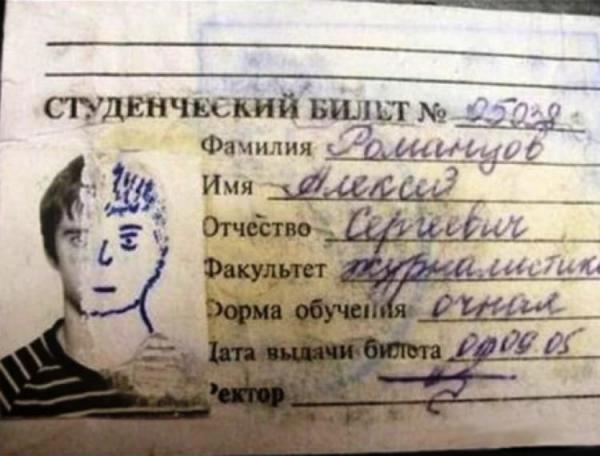 СТУДЕНЧЕСКИЙ БИЛЕТ № 05038
Фамилия Романцов
Имя Алексей
Отчество Сергеевич
Факультет журналистики
Форма обучения очная
Дата выдачи билета 09.05
Ректор